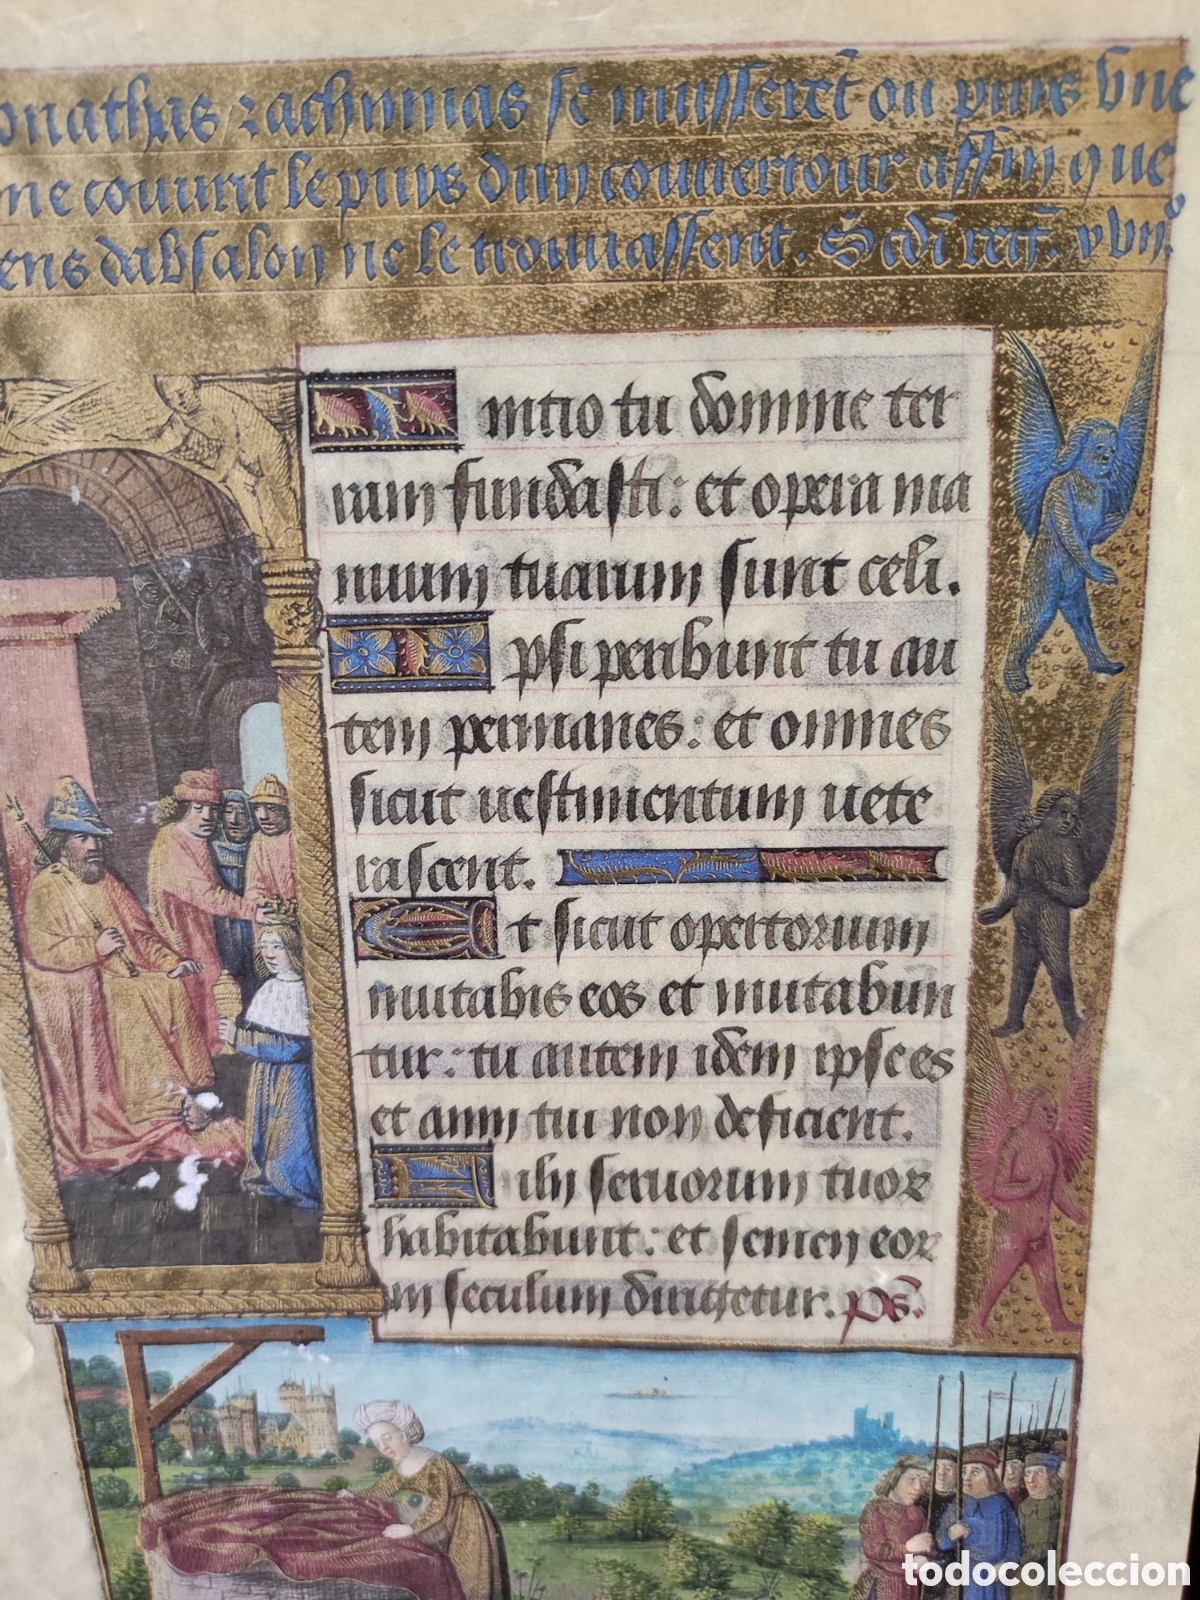 onathas zachimas se musserēt ou puis vne
me couurit le puys dun couuertour affin que
ens dabsalon ne le trouuassent. Scdi reḡ. xvii.º
Initio tu domine ter
ram fundasti: et opera ma
nuum tuarum sunt celi.
Ipsi peribunt tu au
tem permanes: et omnes
sicut uestimentum uete
rascent.
Et sicut opertorium
mutabis eos et mutabun
tur: tu autem idem ipse es
et anni tui non deficient.
Filij seruorum tuor
habitabunt: et semen eor
in seculum dirigetur. ps.
todocoleccion